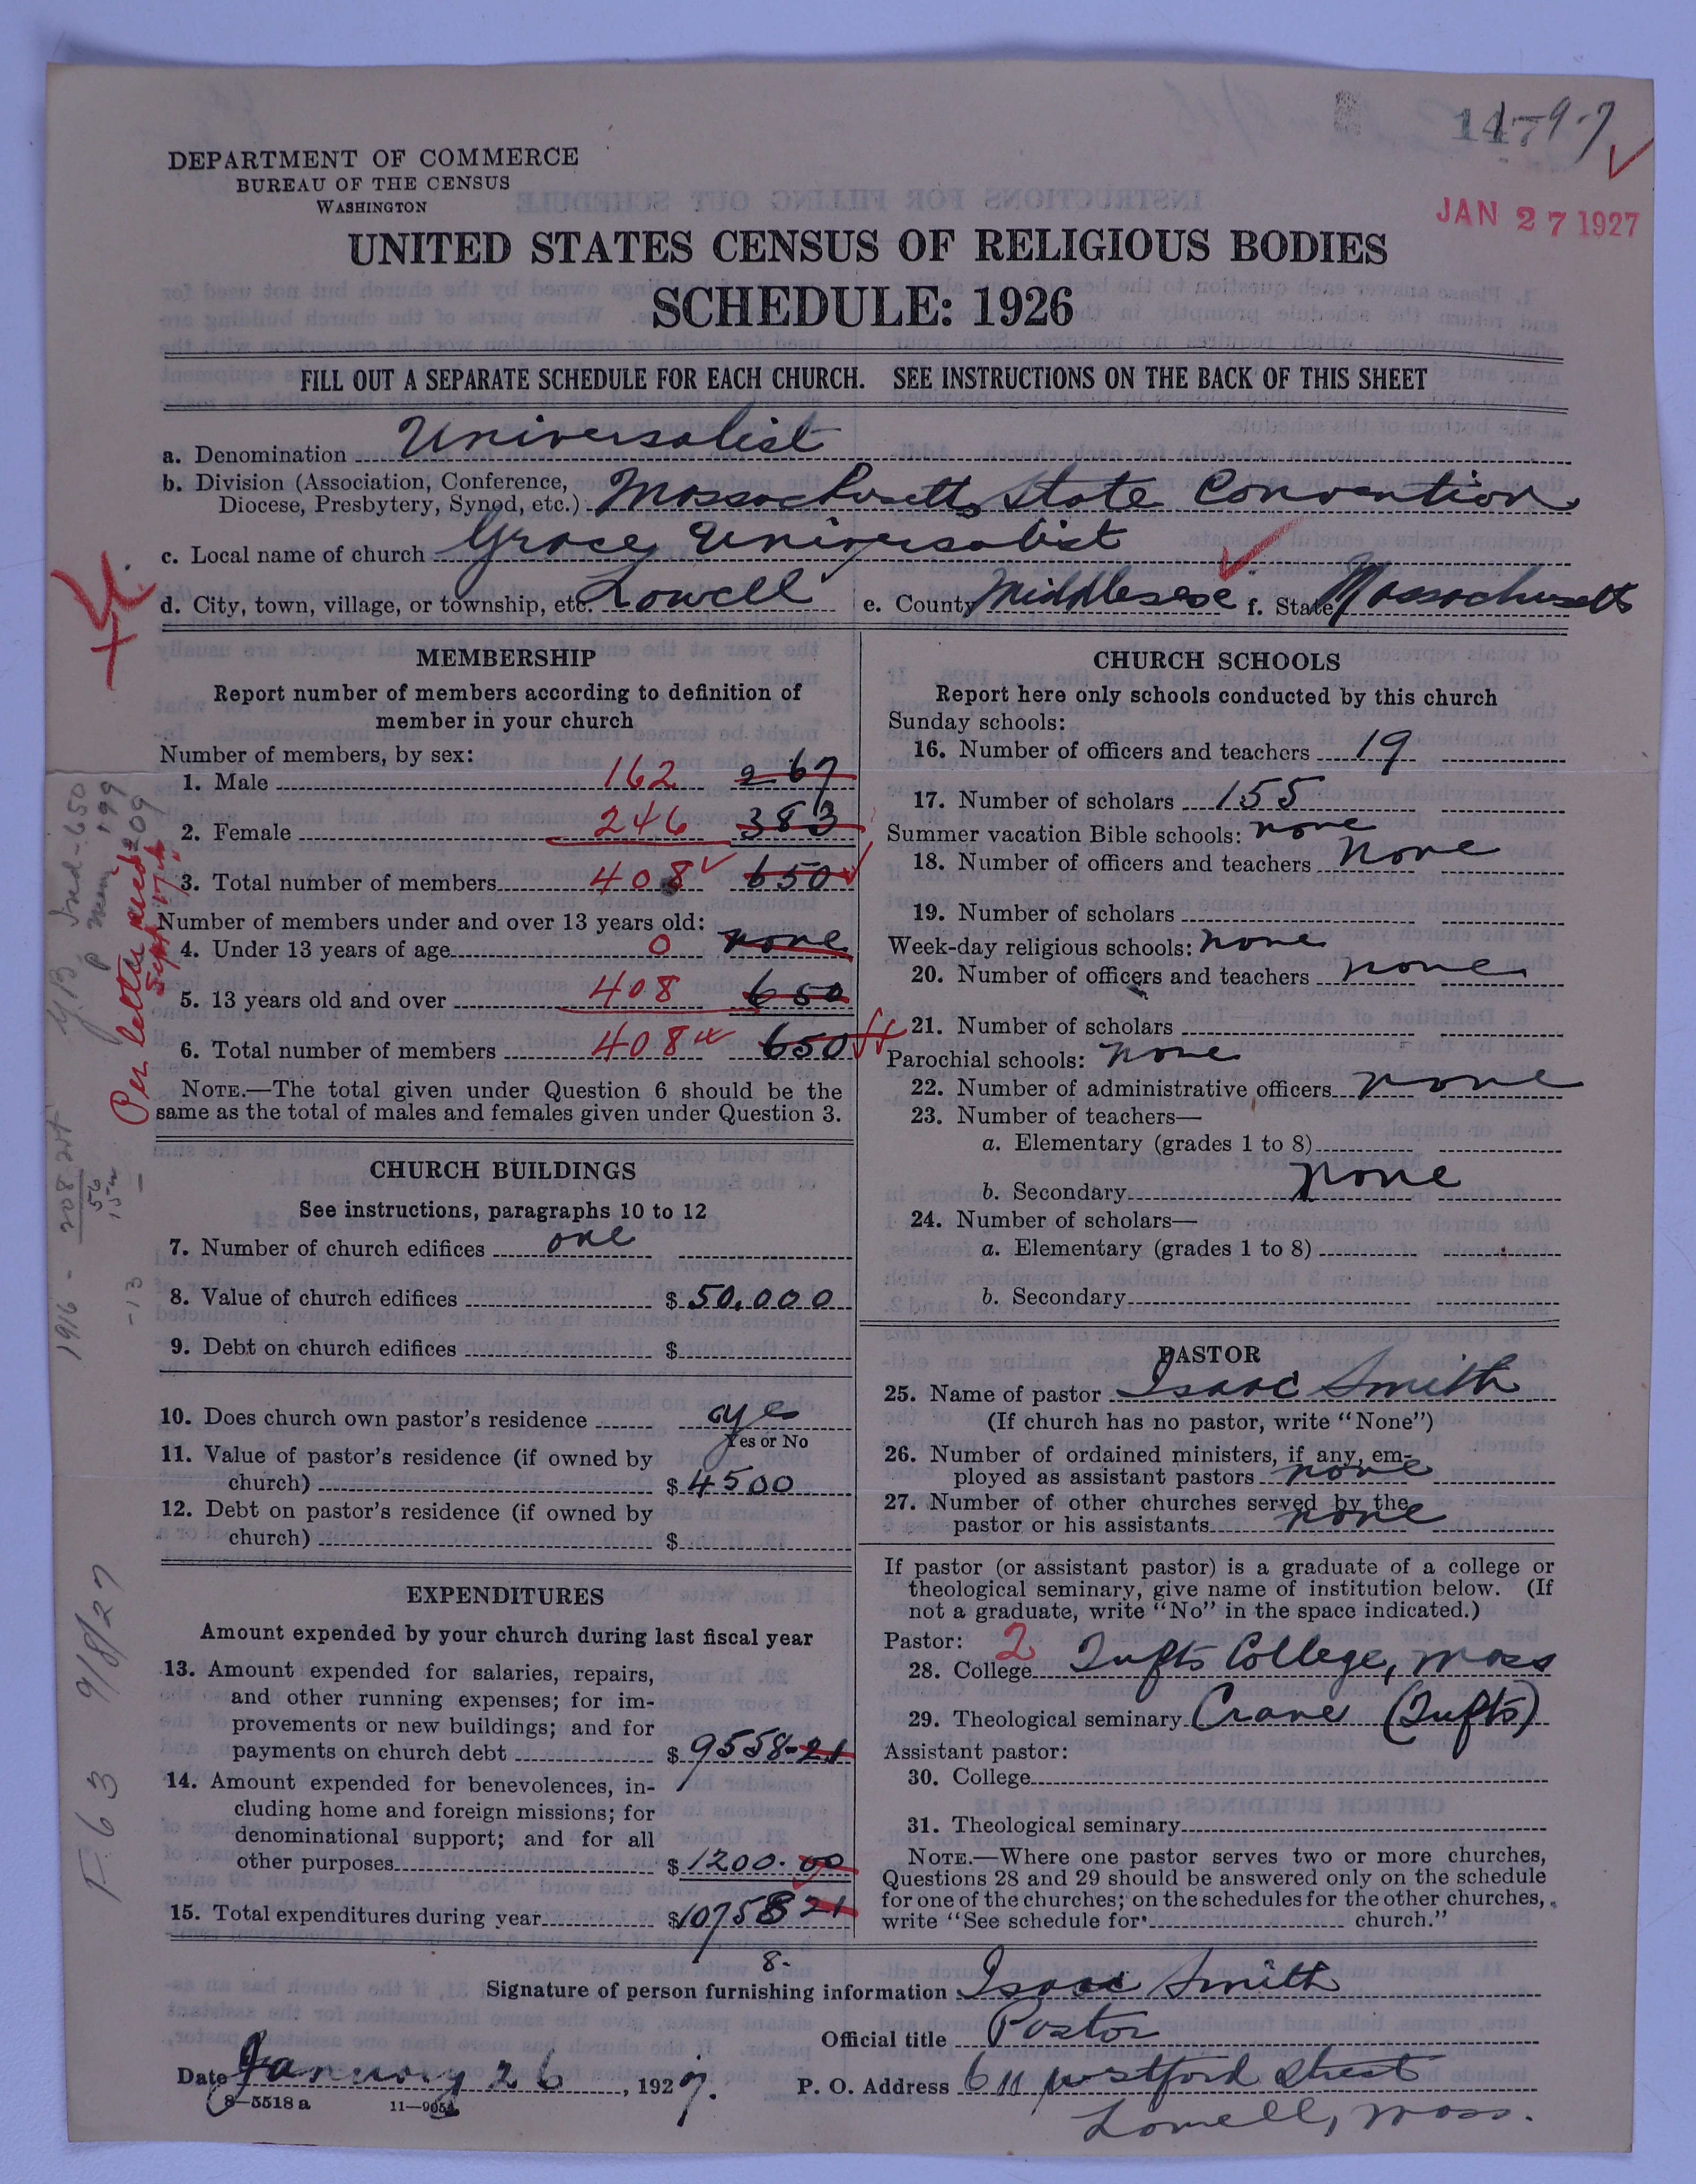 1479-7
JAN 27 1927
DEPARTMENT OF COMMERCE
BUREAU OF THE CENSUS
WASHINGTON
UNITED STATES CENSUS OF RELIGIOUS BODIES
SCHEDULE: 1926
FILL OUT A SEPARATE SCHEDULE FOR EACH CHURCH. SEE INSTRUCTIONS ON THE BACK OF THIS SHEET
a. Denomination Universalist
b. Division (Association, Conference, Diocese, Presbytery, Synod, etc.) Massachusetts State Convention
c. Local name of church Grace Universalist
d. City, town, village, or township, etc. Lowell e. County Middlesex f. State Massachusetts
MEMBERSHIP
Report number of members according to definition of
member in your church
Number of members, by sex:
1. Male 162 267
2. Female 246 383
3. Total number of members 408 650
Number of members under and over 13 years old:
4. Under 13 years of age 0 none
5. 13 years old and over 408 650
6. Total number of members 408 650
NOTE.—The total given under Question 6 should be the
same as the total of males and females given under Question 3.
Per letter recd Sept 17
CHURCH BUILDINGS
See instructions, paragraphs 10 to 12
7. Number of church edifices one
8. Value of church edifices $ 50,000
9. Debt on church edifices $
10. Does church own pastor's residence yes
Yes or No
11. Value of pastor's residence (if owned by
church) $ 4500
12. Debt on pastor's residence (if owned by
church) $
EXPENDITURES
Amount expended by your church during last fiscal year
13. Amount expended for salaries, repairs,
and other running expenses; for im-
provements or new buildings; and for
payments on church debt $ 9558-21
14. Amount expended for benevolences, in-
cluding home and foreign missions; for
denominational support; and for all
other purposes $ 1200.00
15. Total expenditures during year $10758 21
8.
CHURCH SCHOOLS
Report here only schools conducted by this church
Sunday schools:
16. Number of officers and teachers 19
17. Number of scholars 155
Summer vacation Bible schools: none
18. Number of officers and teachers none
19. Number of scholars
Week-day religious schools: none
20. Number of officers and teachers none
21. Number of scholars
Parochial schools: none
22. Number of administrative officers none
23. Number of teachers—
a. Elementary (grades 1 to 8)
b. Secondary none
24. Number of scholars—
a. Elementary (grades 1 to 8)
b. Secondary
PASTOR
25. Name of pastor Isaac Smith
(If church has no pastor, write "None")
26. Number of ordained ministers, if any, em-
ployed as assistant pastors none
27. Number of other churches served by the
pastor or his assistants none
If pastor (or assistant pastor) is a graduate of a college or
theological seminary, give name of institution below. (If
not a graduate, write "No" in the space indicated.)
Pastor: 2
28. College Tufts College, Mass
29. Theological seminary Crane (Tufts)
Assistant pastor:
30. College
31. Theological seminary
NOTE.—Where one pastor serves two or more churches,
Questions 28 and 29 should be answered only on the schedule
for one of the churches; on the schedules for the other churches,
write "See schedule for church."
Signature of person furnishing information Isaac Smith
Official title Pastor
Date January 26, 1927. P. O. Address 611 Westford Street
Lowell, Mass.
8—5518 a 11—9054
F 63 9/8/27